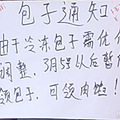 包子通知
由于冷冻包子需优化
调整，3月5以后暂停
领包子，可领肉馅！